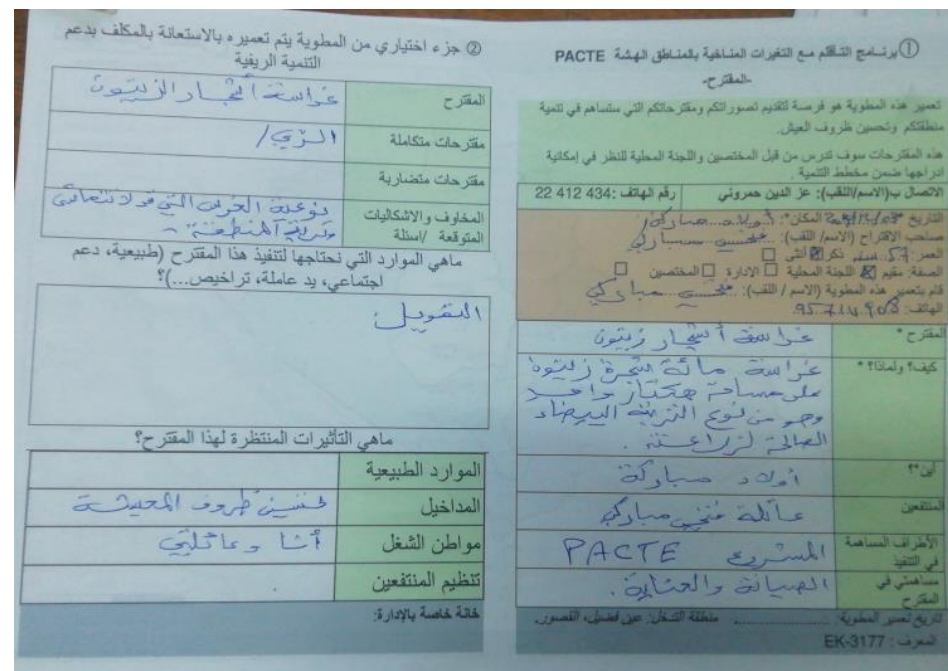 ① برنامج التأقلم مع التغيرات المناخية بالمناطق الهشة PACTE
-المقترح-
تعمير هذه المطوية هو فرصة لتقديم تصوراتكم ومقترحاتكم التي ستساهم في تنمية
منطقتكم وتحسين ظروف العيش.
هذه المقترحات سوف تدرس من قبل المختصين واللجنة المحلية للنظر في إمكانية
ادراجها ضمن مخطط التنمية.
الاتصال ب(الاسم/اللقب): عز الدين حمروني رقم الهاتف: 434 412 22
التاريخ المكان*: أولاد مباركة
صاحب الاقتراح (الاسم/ اللقب): مباركي
العمر: 57 سنة ذكر ☒ أنثى ☐
الصفة: مقيم ☒ اللجنة المحلية ☐ الادارة ☐ المختصين ☐
قام بتعمير هذه المطوية (الاسم / اللقب): مباركي
الهاتف:
المقترح * غراسة أشجار زيتون
كيف؟ ولماذا؟ * غراسة مائة شجرة زيتون
على مساحة هكتار واحد
وهو من نوع التربة البيضاء
الصالحة لزراعته.
أين*؟ أولاد مباركة
المنتفعين عائلة مباركي
الأطراف المساهمة في التنفيذ المشروع PACTE
مساهمتي في المقترح الصيانة والعناية.
تاريخ تعمير المطوية: ........ منطقة التدخل: عين فضيل، القصور.
المعرف: EK-3177
② جزء اختياري من المطوية يتم تعميره بالاستعانة بالمكلف بدعم
التنمية الريفية
المقترح غراسة أشجار الزيتون
مقترحات متكاملة الري /
مقترحات متضاربة
المخاوف والاشكاليات المتوقعة /اسئلة نوعية التي قد لا
وتربة المنطقة -
ماهي الموارد التي نحتاجها لتنفيذ هذا المقترح (طبيعية، دعم
اجتماعي، يد عاملة، تراخيص...)؟
التمويل:
ماهي التأثيرات المنتظرة لهذا المقترح؟
الموارد الطبيعية
المداخيل تحسين ظروف المعيشة
مواطن الشغل أنا وعائلتي
تنظيم المنتفعين
خانة خاصة بالإدارة: